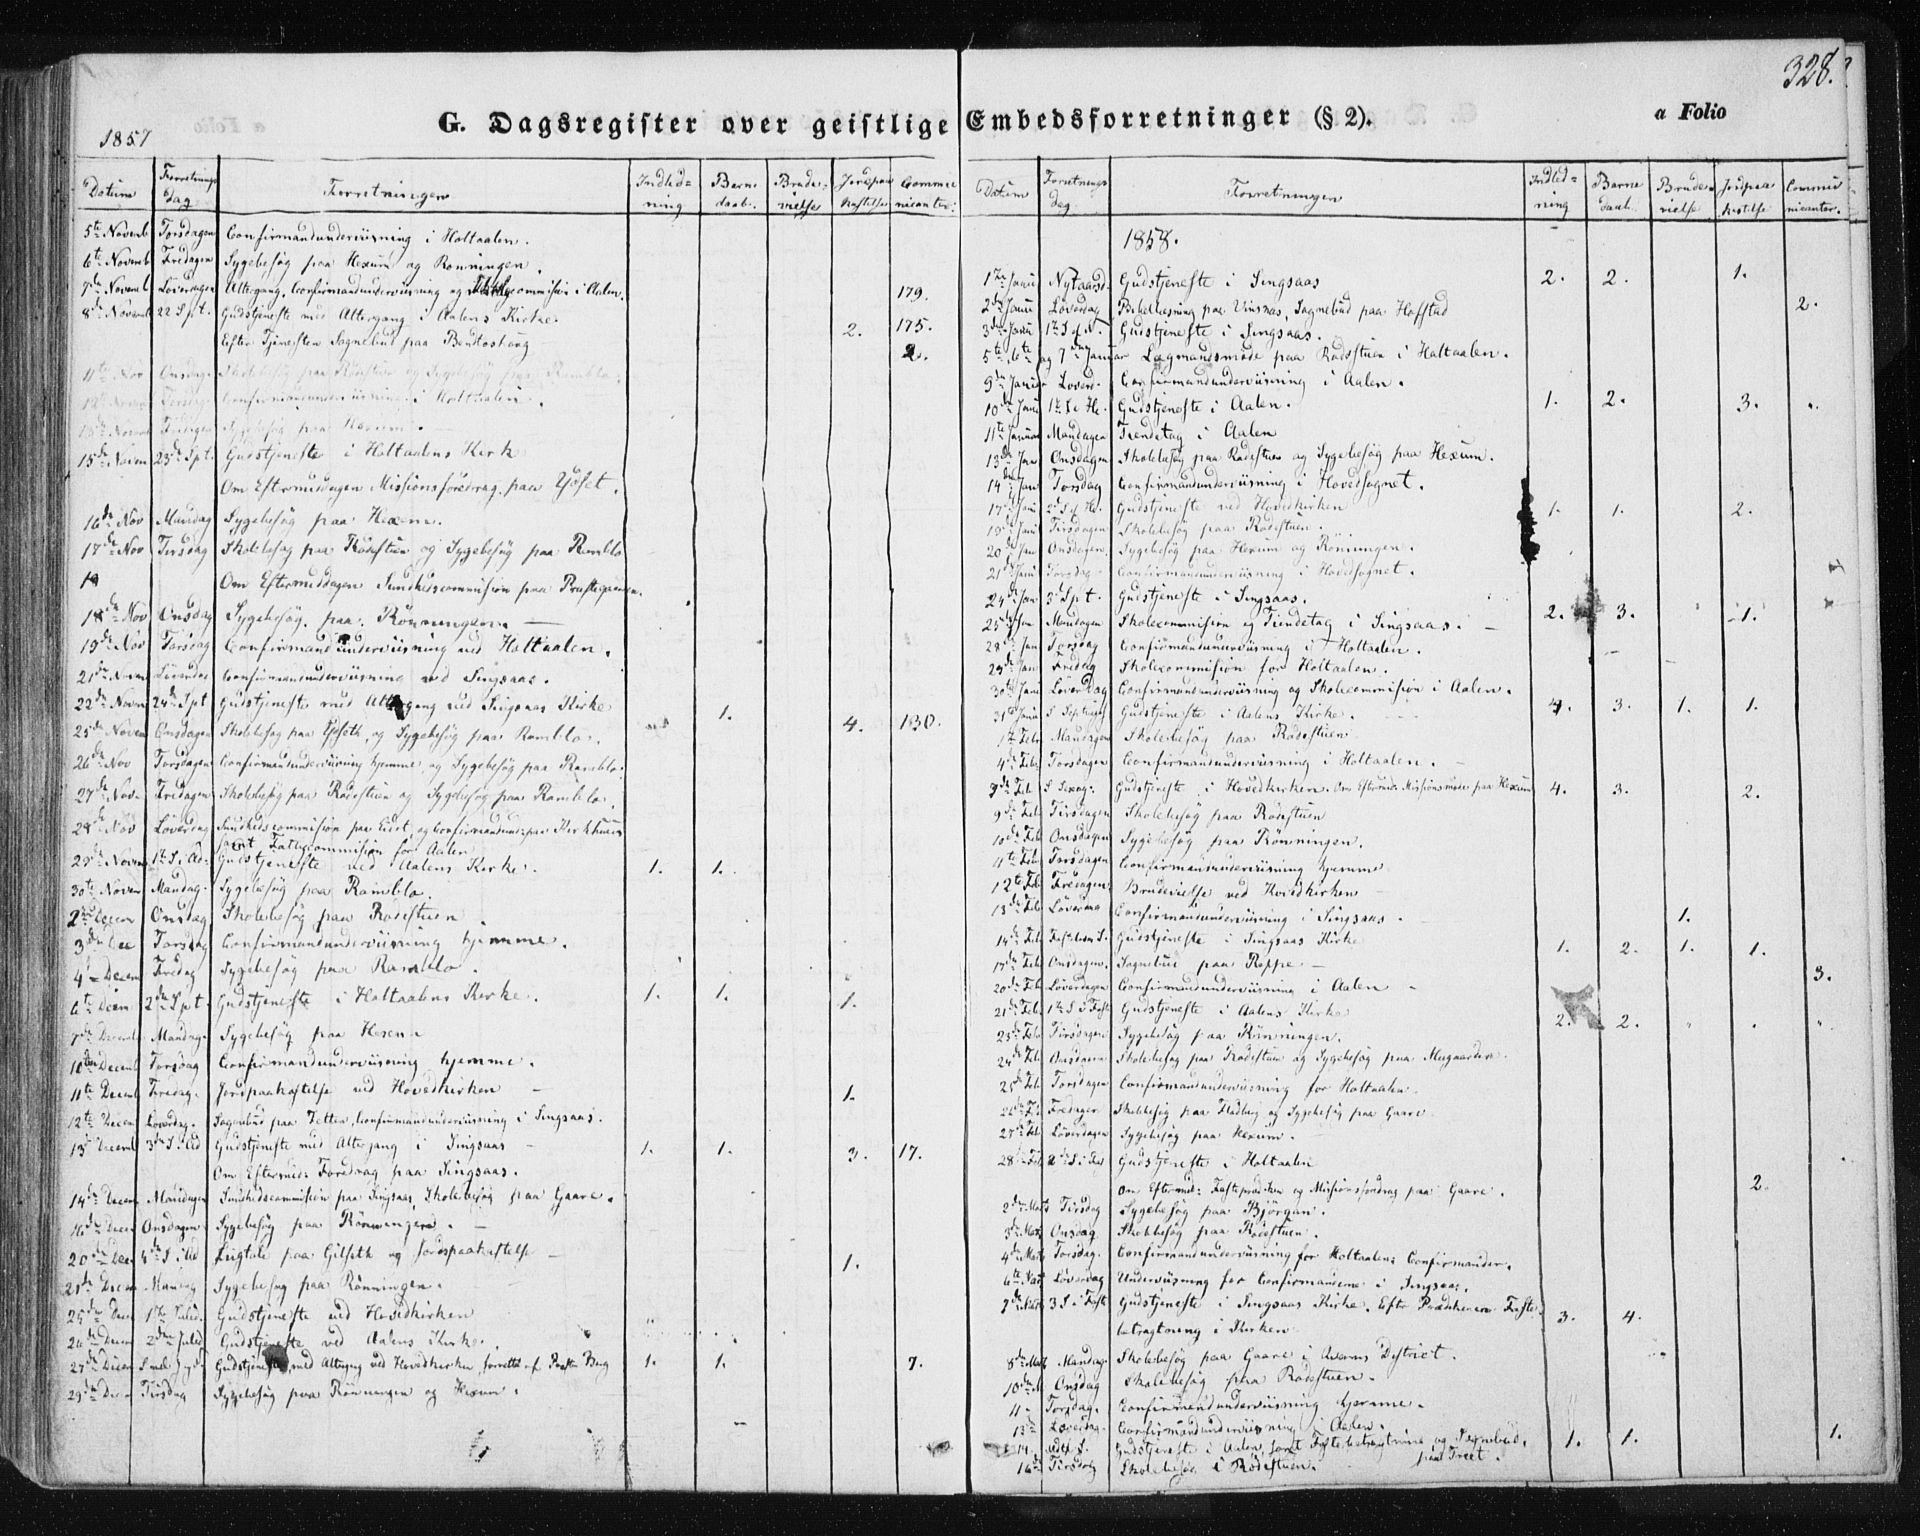 328.
1857
G. Dagsregister over geistlige Embedsforretninger (§ 2).
a Folio
Datum Forretnings Dag Forretningen Indledning Barnedaab Brudevielse Jordpaakastelse Communicanter:
5te Novemb Torsdagen Confirmandunderviisning i Holtaalen.
6te Novemb Fredagen Sygebesøg paa Hexum og Rønningen.
7de Novemb Løverdagen Altergang, Confirmandunderviisning og commision i Aalen. 179.
8de Novemb 22 S p t. Gudstjeneste med Altergang i Aalens Kirke. 2. 175.
Efter Tjenesten Sognebud paa 2.
11te Nov Onsdag Skolebesøg paa Rødestuen og Sygebesøg paa Ramblo.
12te Novemb Torsdag Confirmandunderviisning i Holtaalen.
13de Novemb Fredagen Sygebesøg paa Hexum.
15de Novem 23de S p t. Gudstjeneste i Holtaalens Kirk
Om Eftermiddagen Missionsforedrag paa
16de Nov Mandag Sygebesøg paa Hexem.
17de Nov Tirsdag Skolebesøg paa Rødestuen og Sygebesøg paa Ramblo
18 Om Eftermiddagen Sundhedscommision paa Præstegaarden.
18de Nov Onsdag Sygebesøg paa Rønningen. —
19de Nov Torsdag Confirmandunderviisning ved Holtaalen.
21de Novem Løverdag Confirmandunderviisning ved Singsaas.
22de Novem 24de S p t Gudstjeneste med Altergang ved Singsaas Kirke 1. 4. 130.
25de Novem Onsdagen Skolebesøg paa og Sygebesøg paa Ramblo.
26de Nov Torsdagen Confirmandunderviisning hjemme, og Sygebesøg paa Ramblo.
27de Nov. Fredagen Skolebesøg paa Rødestuen og Sygebesøg paa Ramblo.
28de Nov Løverdag Sundhedscommision paa Eidet, og Confirmandund: paa Kirkhuus
samt Fattigcommision for Aalen
29de Novem 1te S. i Ad: Gudstjeneste ved Aalens Kirke. 1. 1.
30te Novem Mandag. Sygebesøg paa Ramblo.
2den Decem Onsdag Skolebesøg paa Rødestuen.
3die Dec Torsdag Confirmandunderviisning hjemme.
4de Decem Fredag Sygebesøg paa Ramblo.
6te Decem 2den S p t. Gudstjeneste i Holtaalens Kirke. 1. 1. 1.
7de Decemb Mandag. Sygebesøg paa Hexem
10de Decemb Torsdag Confirmandunderviisning hjemme.
11te Decemb Fredag. Jordpaakastelse ved Hovedkirken — 1.
12te Decem Løverdag. Sognebud paa Confirmandunderviisning i Singsaas.
13de Decemb 3die S. i Ad Gudstjeneste med Altergang i Singsaas — 1. 1. 3. 17.
Om Eftermid: Foredrag paa Singsaas.
14de Decem Mandagen Sundhedscommision paa Singsaas, Skolebesøg paa Gaare.
16de Decem Onsdagen Sygebesøg paa Rønningen. —
20de Dec 4de S. i Ad Liigtale paa Gilseth og Jordpaakastelse — 1.
21de Decem Mandag Sygebesøg paa Rønningen.
25de Decem 1te Juled. Gudstjeneste ved Hovedkirken
26de Decem 2den Juled Gudstjeneste ved Aalens Kirke.
27de Decem S. mel Jogn Gudstjeneste med Altergang ved Hovedkirken, forrettet af Pastor Berg 1. 1. 7.
29de Decem Tirsdag Sygebesøg paa Rønningen og Hexum.
Datum Forretnings dag Forretningen Indledning Barnedaab Brudevielse Jordpaakastelse Communicanter.
1858.
1te Janu Nytaarsd. Gudstjeneste i Singsaas 2. 2. 1.
2den Janu Løverdag Bibellæsning paa Vinsnes, Sognebud paa Hofstad 2.
3die Janu 1te S. ef. N. Gudstjeneste i Singsaas.
5te 6te og 7de Januar Lægmandsmøde paa Rødestuen i Holtaalen.
9de Janu Løverd. Confirmandunderviisning i Aalen.
10de Janu 1te S. e He. Gudstjeneste i Aalen. 1. 2. 3. "
11te Januar Mandagen Tiendetag i Aalen
13de Jan Onsdagen Skolebesøg paa Rødestuen og Sygebesøg paa Hexum.
14de Jan Torsdag Confirmandunderviisning i Hovedsognet.
17de Janu 2de S. ef He. Gudstjeneste ved Hovedkirken 1. 1. 2.
19de Janu Tirsdagen Skolebesøg paa Rødestuen.
20de Jan Onsdagen Sygebesøg paa Hexum og Rønningen.
21de Janu Torsdag Confirmandunderviisning i Hovedsognet.
24de Jan 3die S p t. Gudstjeneste i Singsaas. 2. 3. 1.
25de Jan Mandagen Skolecommision og Tiendetag i Singsaas. —
28de Jan Torsdag Confirmandunderviisning i Holtaalen.
29de Jan Fredag Skolecommision for Holtaalen.
30te Janu Løverdag Confirmandunderviisning og Skolecommision i Aalen.
31te Janu S Septuag Gudstjeneste i Aalens Kirke. 4. 3. 1. 1.
1te Febr Mandagen Skolebesøg paa Rødestuen.
4de Feb Torsdagen Confirmandunderviisning i Holtaalen. —
7de Feb S Sexag: Gudstjeneste i Hovedkirken. Om Eftermid: Missionsmøde paa Hexum 4. 3. 2.
9de Feb Tirsdagen Skolebesøg paa Rødestuen
10de Feb Onsdagen Sygebesøg paa Rønningen.
11te Feb Torsdagen Confirmandunderviisning hjemme
12te Feb Fredagen Brudevielse ved Hovedkirken — 1.
13de Feb Løverdag Confirmandunderviisning i Singsaas.
14de Feb Fastelavn S. Gudstjeneste i Singsaas Kirke 1. 2. 1. 1.
17de Feb Onsdagen. Sognebud paa Roppe — 3.
20de Feb Løverdagen Confirmandunderviisning i Aalen —
21de Feb 1te S i Faste Gudstjeneste i Aalens Kirke 2. 2. " " "
23de Feb Tirsdagen Sygebesøg paa Rønningen.
24de Feb Onsdagen Skolebesøg paa Rødestuen og Sygebesøg paa
25de Feb Torsdagen Confirmandunderviisning for Holtaalen.
26de Feb Fredagen Skolebesøg paa Fladberg og Sygebesøg paa Gaare
27de Feb Løverdagen Sygebesøg paa Hexum. —
28de Feb 2de S i Fas Gudstjeneste i Holtaalen
Om Eftermid: Fasteprædiken og Missionsforedrag paa Gaare. 2.
2den Mart Tirsdag Sygebesøg paa Bjørgan.
3die Mart Onsdag Skolebesøg paa Rødestuen.
4de Mart Torsdag. Confirmandunderviisning for Holtaalens Confirmander.
6te Mart Løverdag Underviisning for Confirmanderne i Singsaas.
7de Mart 3 S. i Fast Gudstjeneste i Singsaas Kirke. Efter Prædikenen Faste- 3. 4.
betragtning i Kirken
8de Mart Mandag Skolebesøg paa Gaare i District.
10de M Onsdag Skolebesøg paa Rødestuen.
11 — Torsdag. Confirmandunderviisning hjemme.
13de Løverdag. Confirmandunderviisning i Aalen.
14. Gudstjeneste i Aalen, samt Fastebetragtning, og Sognebud. 1. 1. 1.
paa Treet.
16de Tirsdag Skolebesøg i Rødestuen.